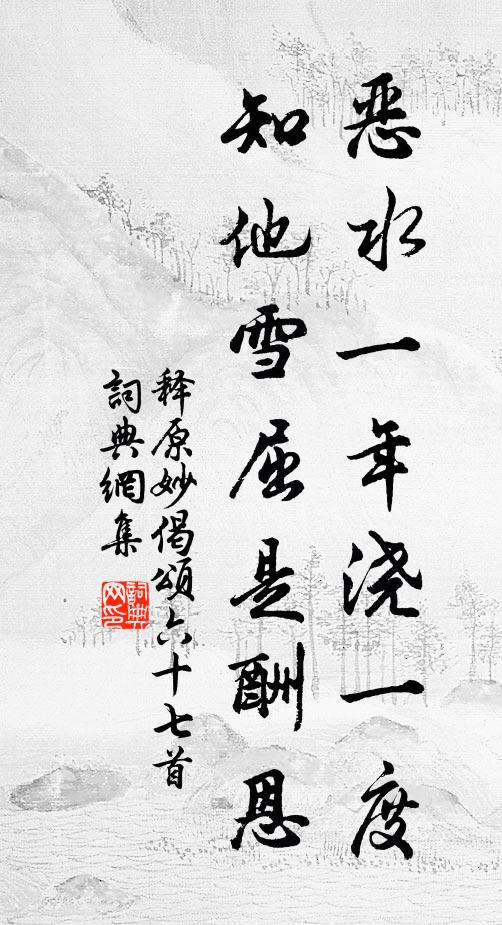 恶水一年浇一度
知他雪屈是酬恩
释原妙偈頌六十七首
詞典網集
詞典
网印